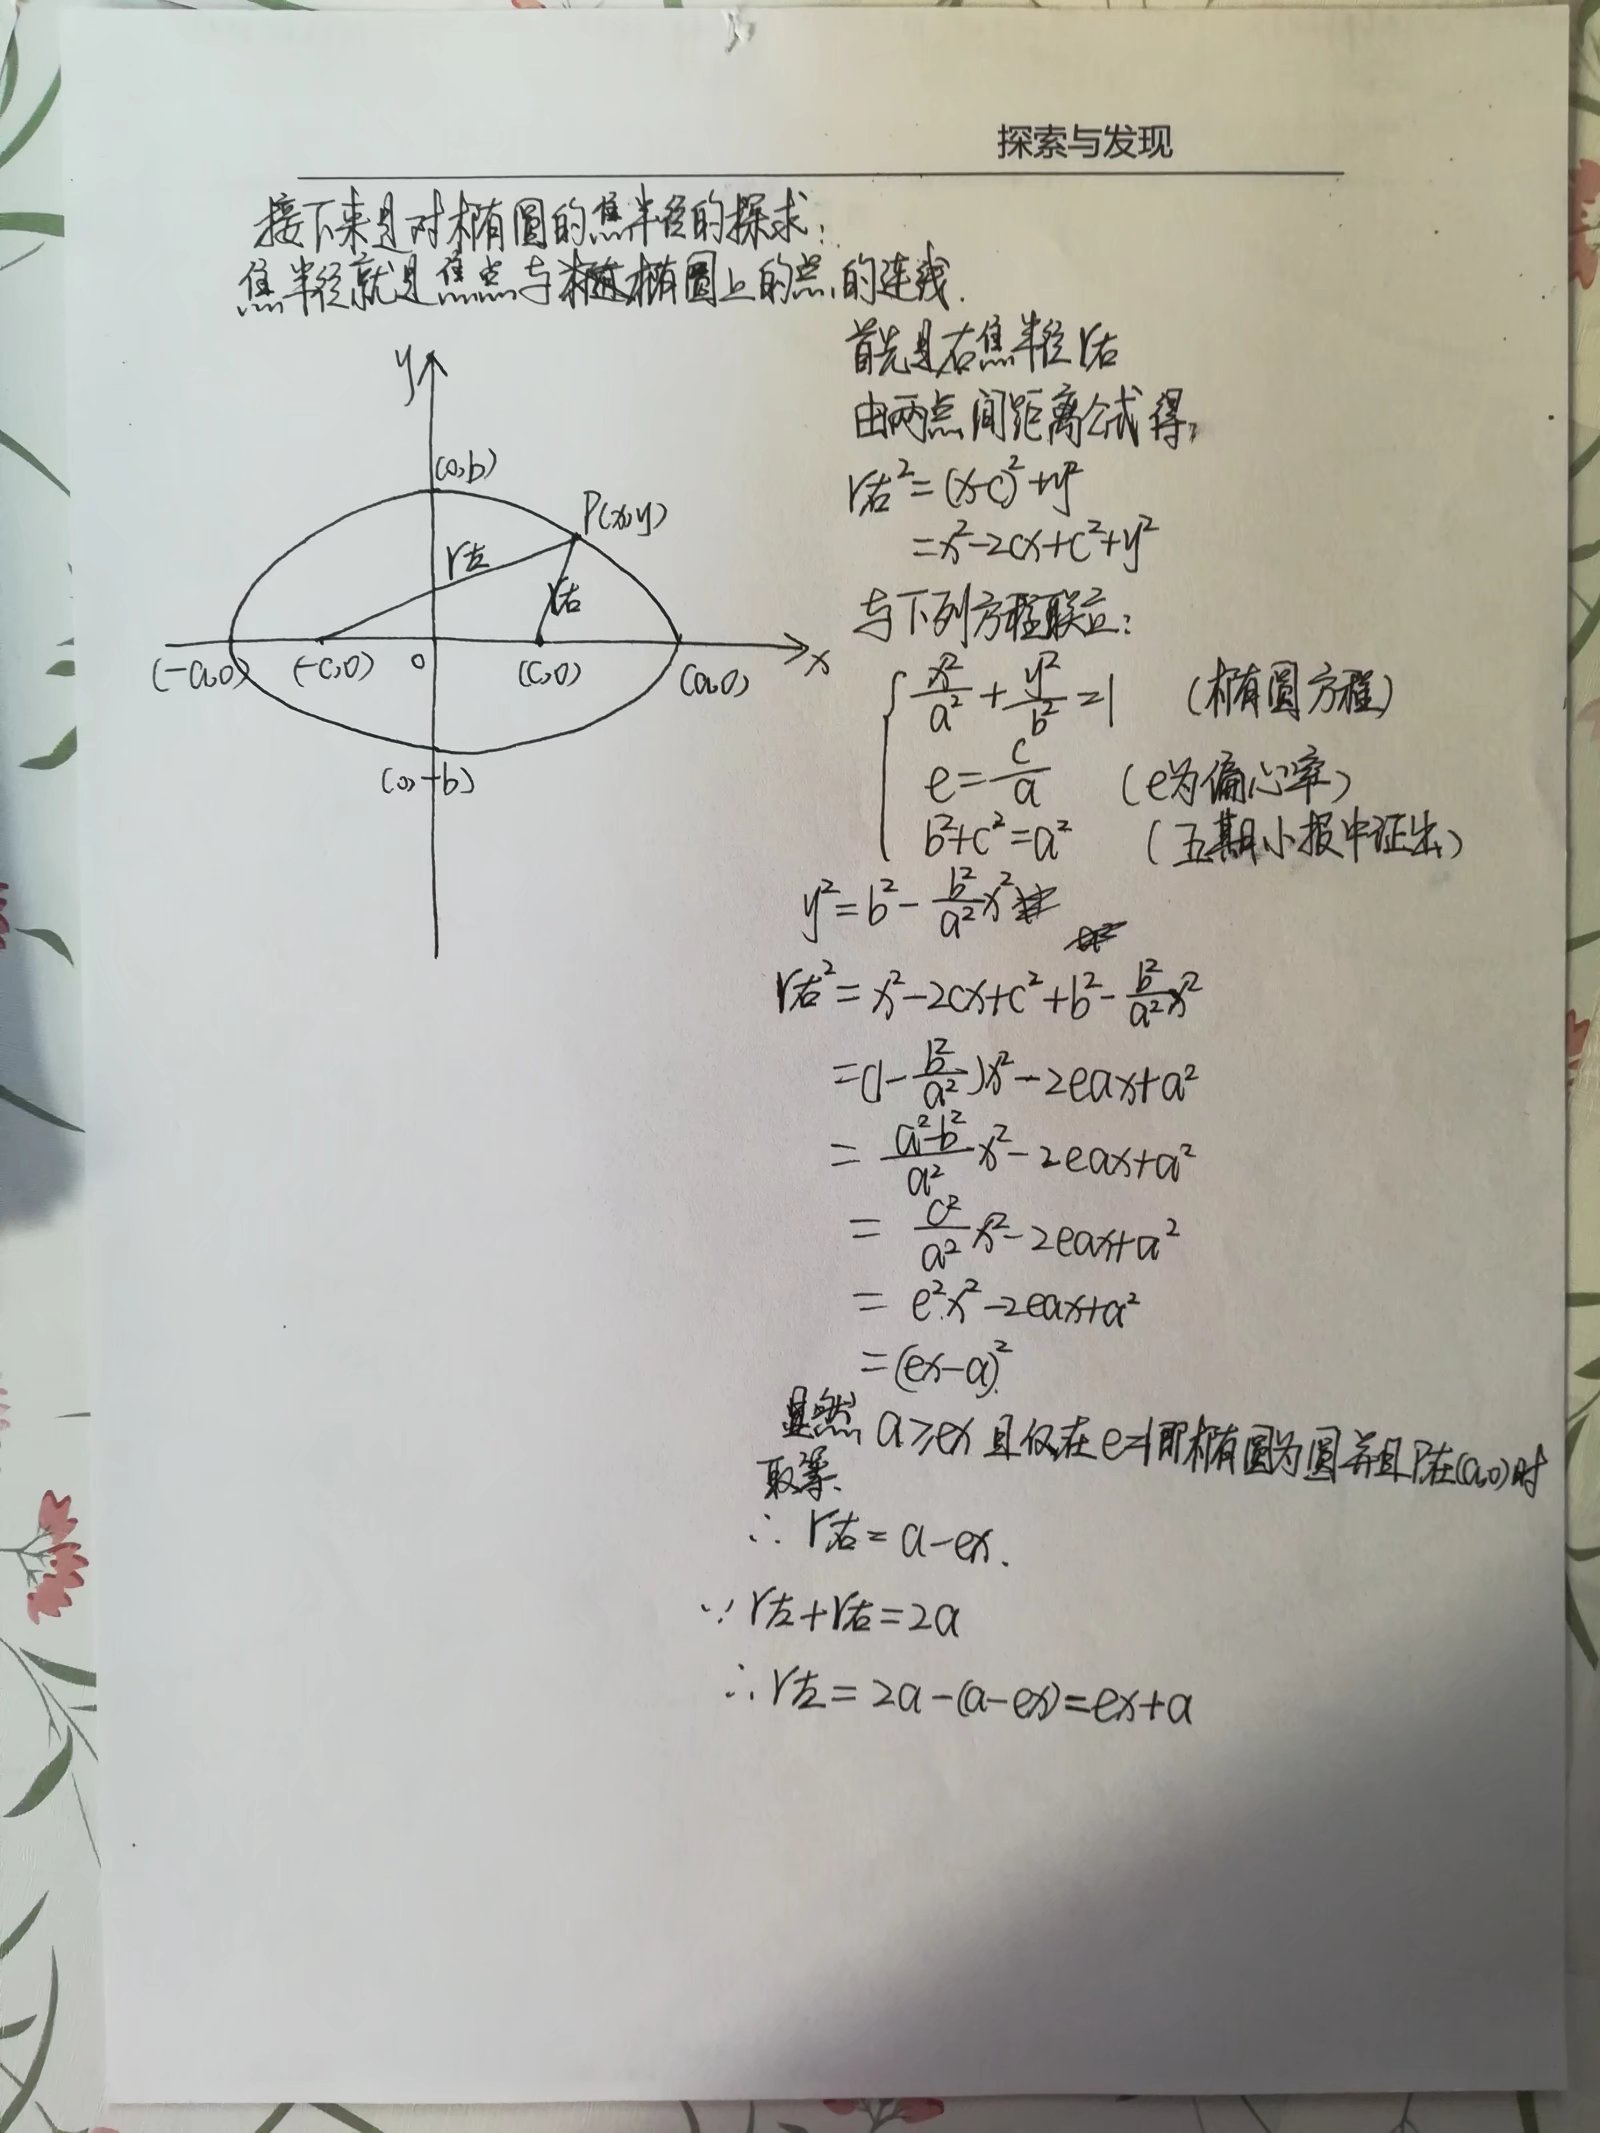 探索与发现
接下来是对椭圆的焦半径的探求:
焦半径就是焦点与椭圆上的点的连线.
首先是右焦半径r右
由两点间距离公式得,
r右²=(x-c)²+y²
=x²-2cx+c²+y²
与下列方程联立:
x²/a²+y²/b²=1 (椭圆方程)
e=c/a (e为偏心率)
b²+c²=a² (五期小报中证出)
y
(0,b)
P(x,y)
r左
r右
(-a,0) (-c,0) 0 (c,0) (a,0) x
(0,-b)
y²=b²-b²/a² x²
r右²=x²-2cx+c²+b²-b²/a² x²
=(1-b²/a²)x²-2eax+a²
=(a²-b²)/a² x²-2eax+a²
=c²/a² x²-2eax+a²
=e²x²-2eax+a²
=(ex-a)²
显然 a≥ex 且仅在e=1即椭圆为圆并且P在(a,0)时
取等.
∴r右=a-ex.
∵r左+r右=2a
∴r左=2a-(a-ex)=ex+a